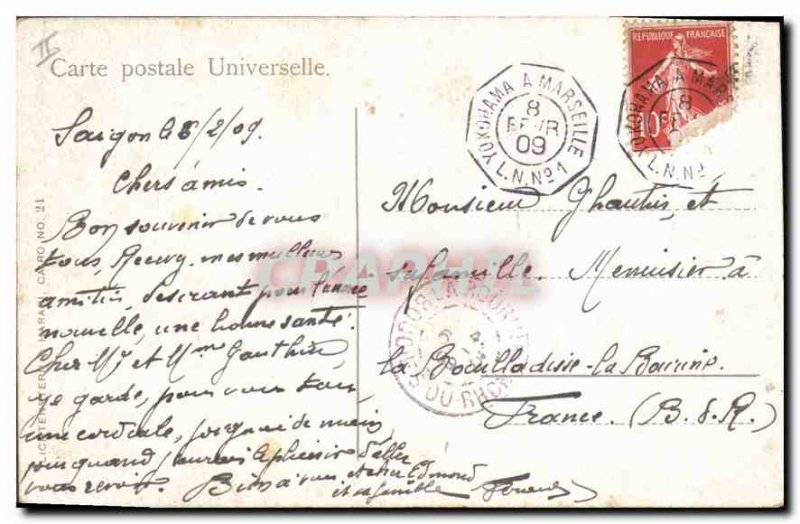 Carte postale Universelle.
Saigon le 8/2/09.
Chers amis.
Bon souvenir de vous
tous, Recevez mes meilleurs
amitiés, désirant pour l'année
nouvelle, une bonne santé.
Cher Mr et Mme Gauthier,
je garde, pour vous tous,
une cordiale, poignée de main,
pour quand j'aurais le plaisir d'aller
vous revoir. Bien à vous Edmond
et sa famille
YOKOHAMA A MARSEILLE
8
FEVR
09
L.N. No 1
REPUBLIQUE FRANCAISE
10
YOKOHAMA A MAR
8
FE
L.N. No
Monsieur Ghautier, et
sa famille. Menuisier à
la Bouilladisse-la Bourine.
France. (B. d. R.)
DU RHONE
CAIRO NO. 21